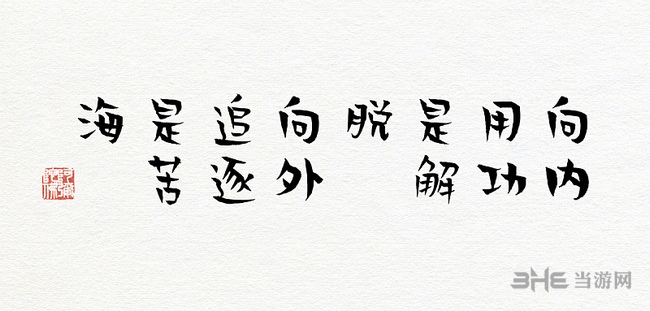 向内
用功
是解
脱
向外
追逐
是苦
海
3HE 当游网